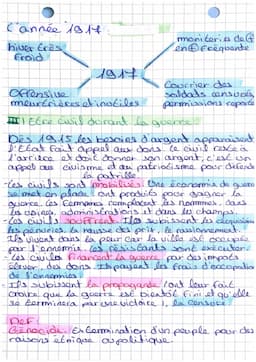 L'année 1917
hiver très
froid
1917
Offensive
meurtrières et inutiles
Courrier des
soldats censurés,
permissions reportées
III Être civil durant la guerre :
Dès 1915 les besoins d'argent apparaissent
l'État fait appel aux dons. Le civil reste à
l'arrière et doit donner son argent, c'est un
appel au civisme et au patriotisme pour défendre
la patrille
Les civils sont mobilisés: Une économie de guerre
se met en place
guerre. Les femmes remplacent les hommes, dans
les usines, administrations et dans les champs.
Les civils souffrent. Ils subissent les
les pénuries, la hausse des prix, le rationnement.
Ils vivent dans la peur car la ville est occupée
par l'ennemie. Les résistants sont exécuter.
Les civils financent la guerre par des impôts
élever, des dons. Ils payent les frais d'occupation
de l'ennemie.
Ils subissent la propagande (on leur fait
croire que la guerre est bientôt fini et qu'elle
se terminera par une victoire), la censure
DeF:
Génocide: Extermination d'un peuple pour des
raisons ethnique ou politique.